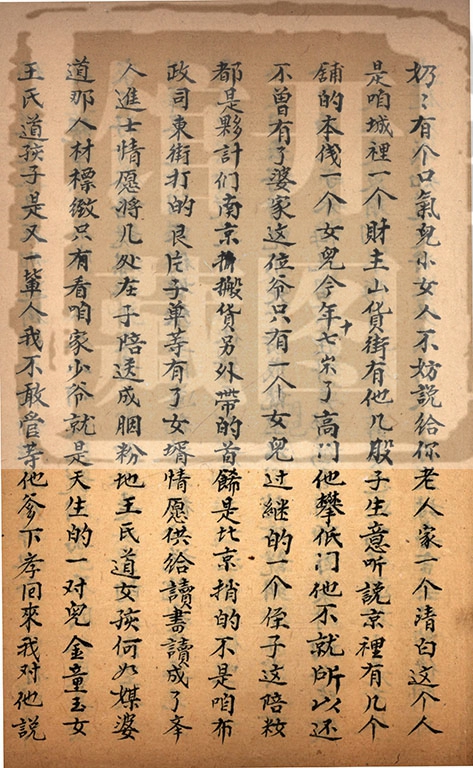 奶〻有个口氣兒小女人不妨說给你老人家一个清白这个人
是咱城裡一个財主山貨街有他几股子生意听說京裡有几个
舖的本俴一个女兒今年十七岁了高門他攀低門他不就所以还
不曾有了婆家这位爷只有一个女兒过継的一个侄子这陪粧
都是夥計们南京搬貨另外帶的首餙是北京捎的不是咱布
政司東街打的艮片子单等有了女壻情愿供给讀書讀成了举
人進士情愿將几处庄子陪送成胭粉地王氏道女孩何如媒婆
道那人材標緻只有看咱家少爷就是天生的一对兒金童玉女
王氏道孩子是又一輩人我不敢管等他爹下孝回來我对他說